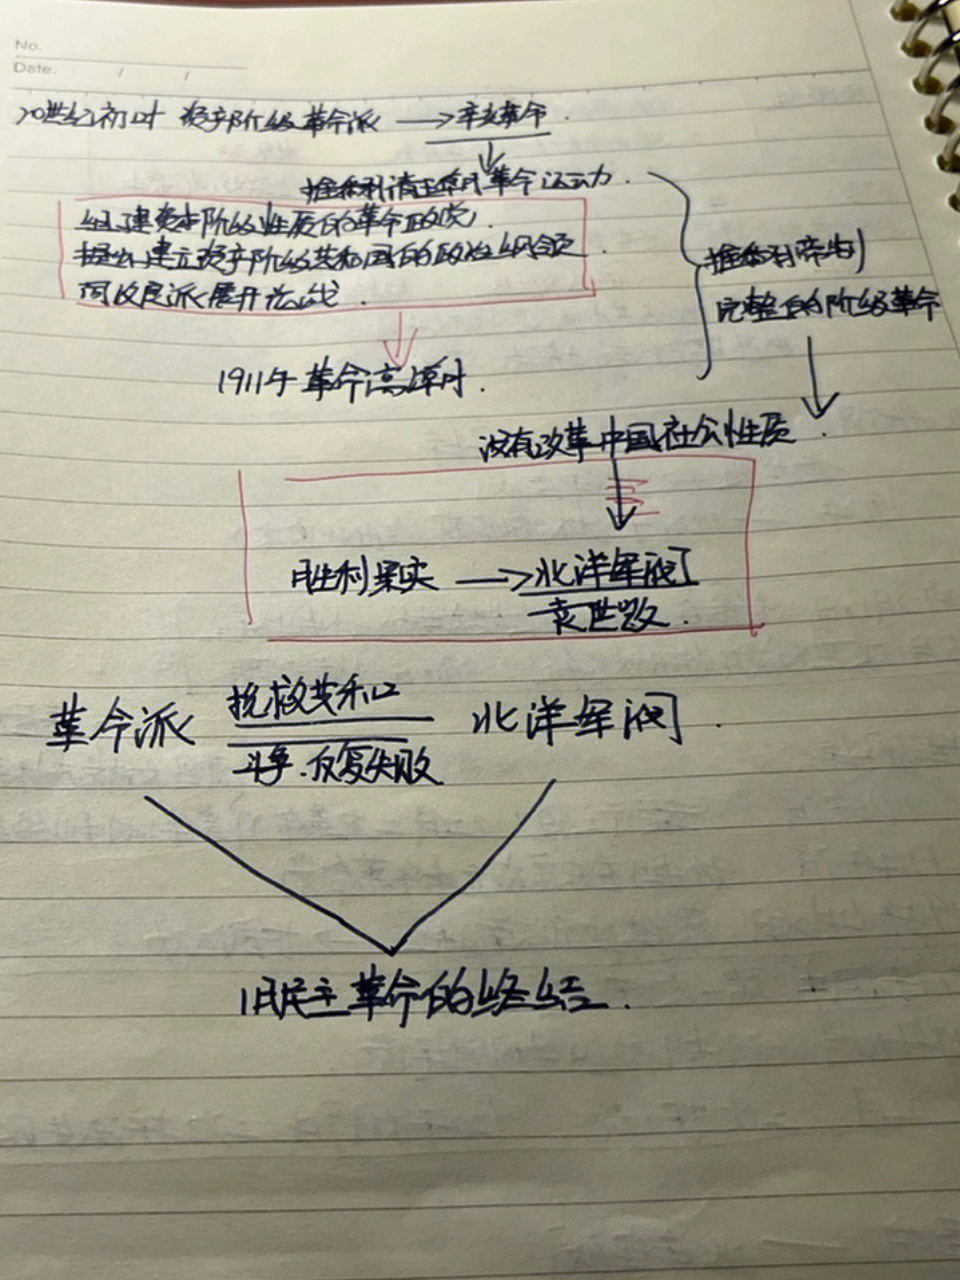 No.
Date. / /
20世纪初叶 资产阶级革命派 → 辛亥革命.
推翻清王朝革命运动.
组建资本阶级性质的革命政党,
提出建立资产阶级共和国的政治纲领.
同改良派展开论战.
推翻帝制
完整的阶级革命
1911年 革命高潮时.
没有改革中国社会性质.
胜利果实 → 北洋军阀
袁世凯.
革命派 挽救共和 北洋军阀.
斗争.反复失败
旧民主革命的终结.